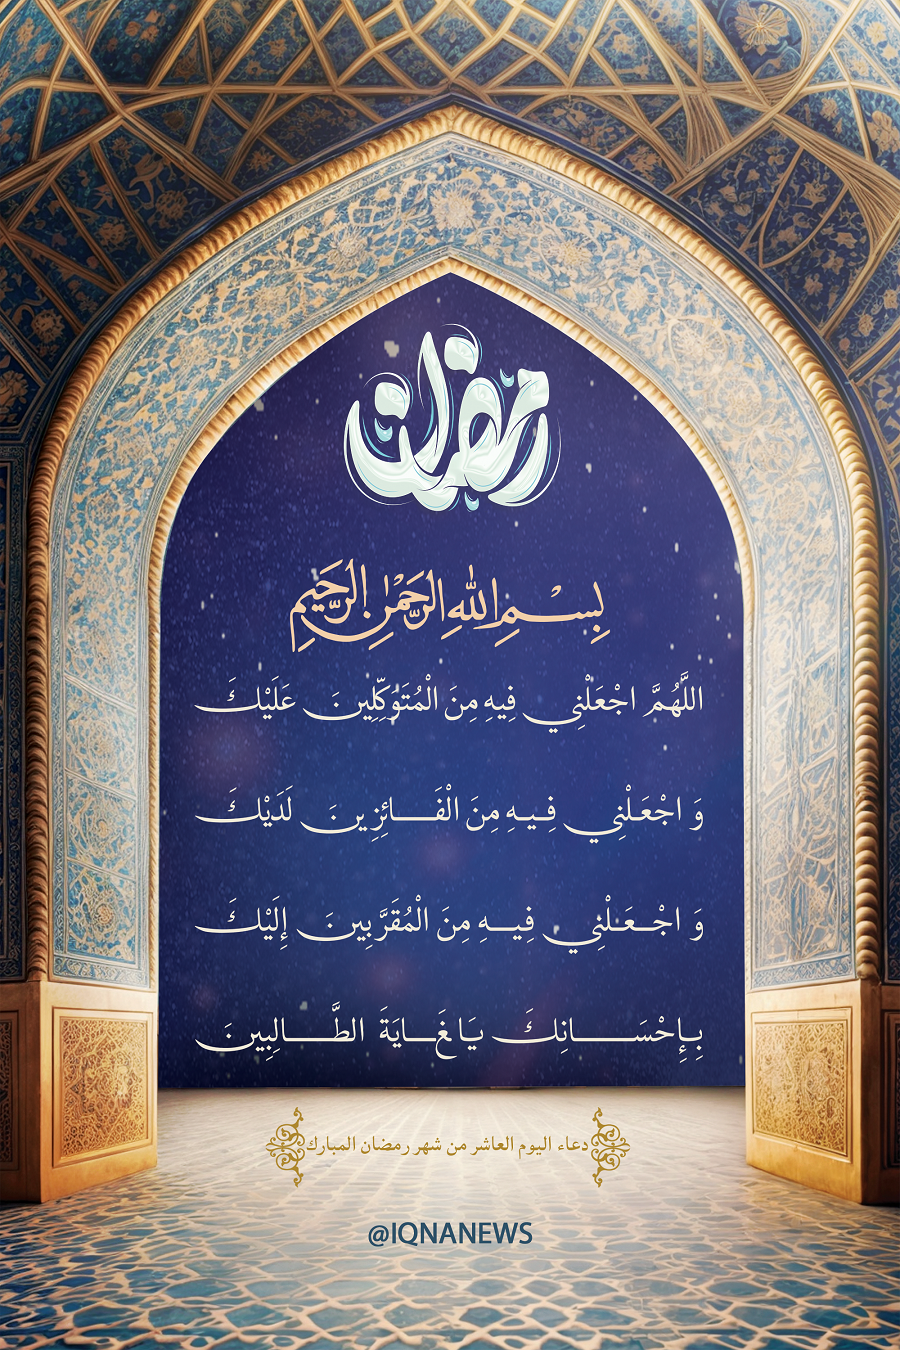 رمضان
بِسْمِ اللّٰهِ الرَّحْمٰنِ الرَّحِيمِ
اللَّهُمَّ اجْعَلْنِي فِيهِ مِنَ الْمُتَوَكِّلِينَ عَلَيْكَ
وَ اجْعَلْنِي فِيهِ مِنَ الْفَائِزِينَ لَدَيْكَ
وَ اجْعَلْنِي فِيهِ مِنَ الْمُقَرَّبِينَ إِلَيْكَ
بِإِحْسَانِكَ يَا غَايَةَ الطَّالِبِينَ
دعاء اليوم العاشر من شهر رمضان المبارك
@IQNANEWS